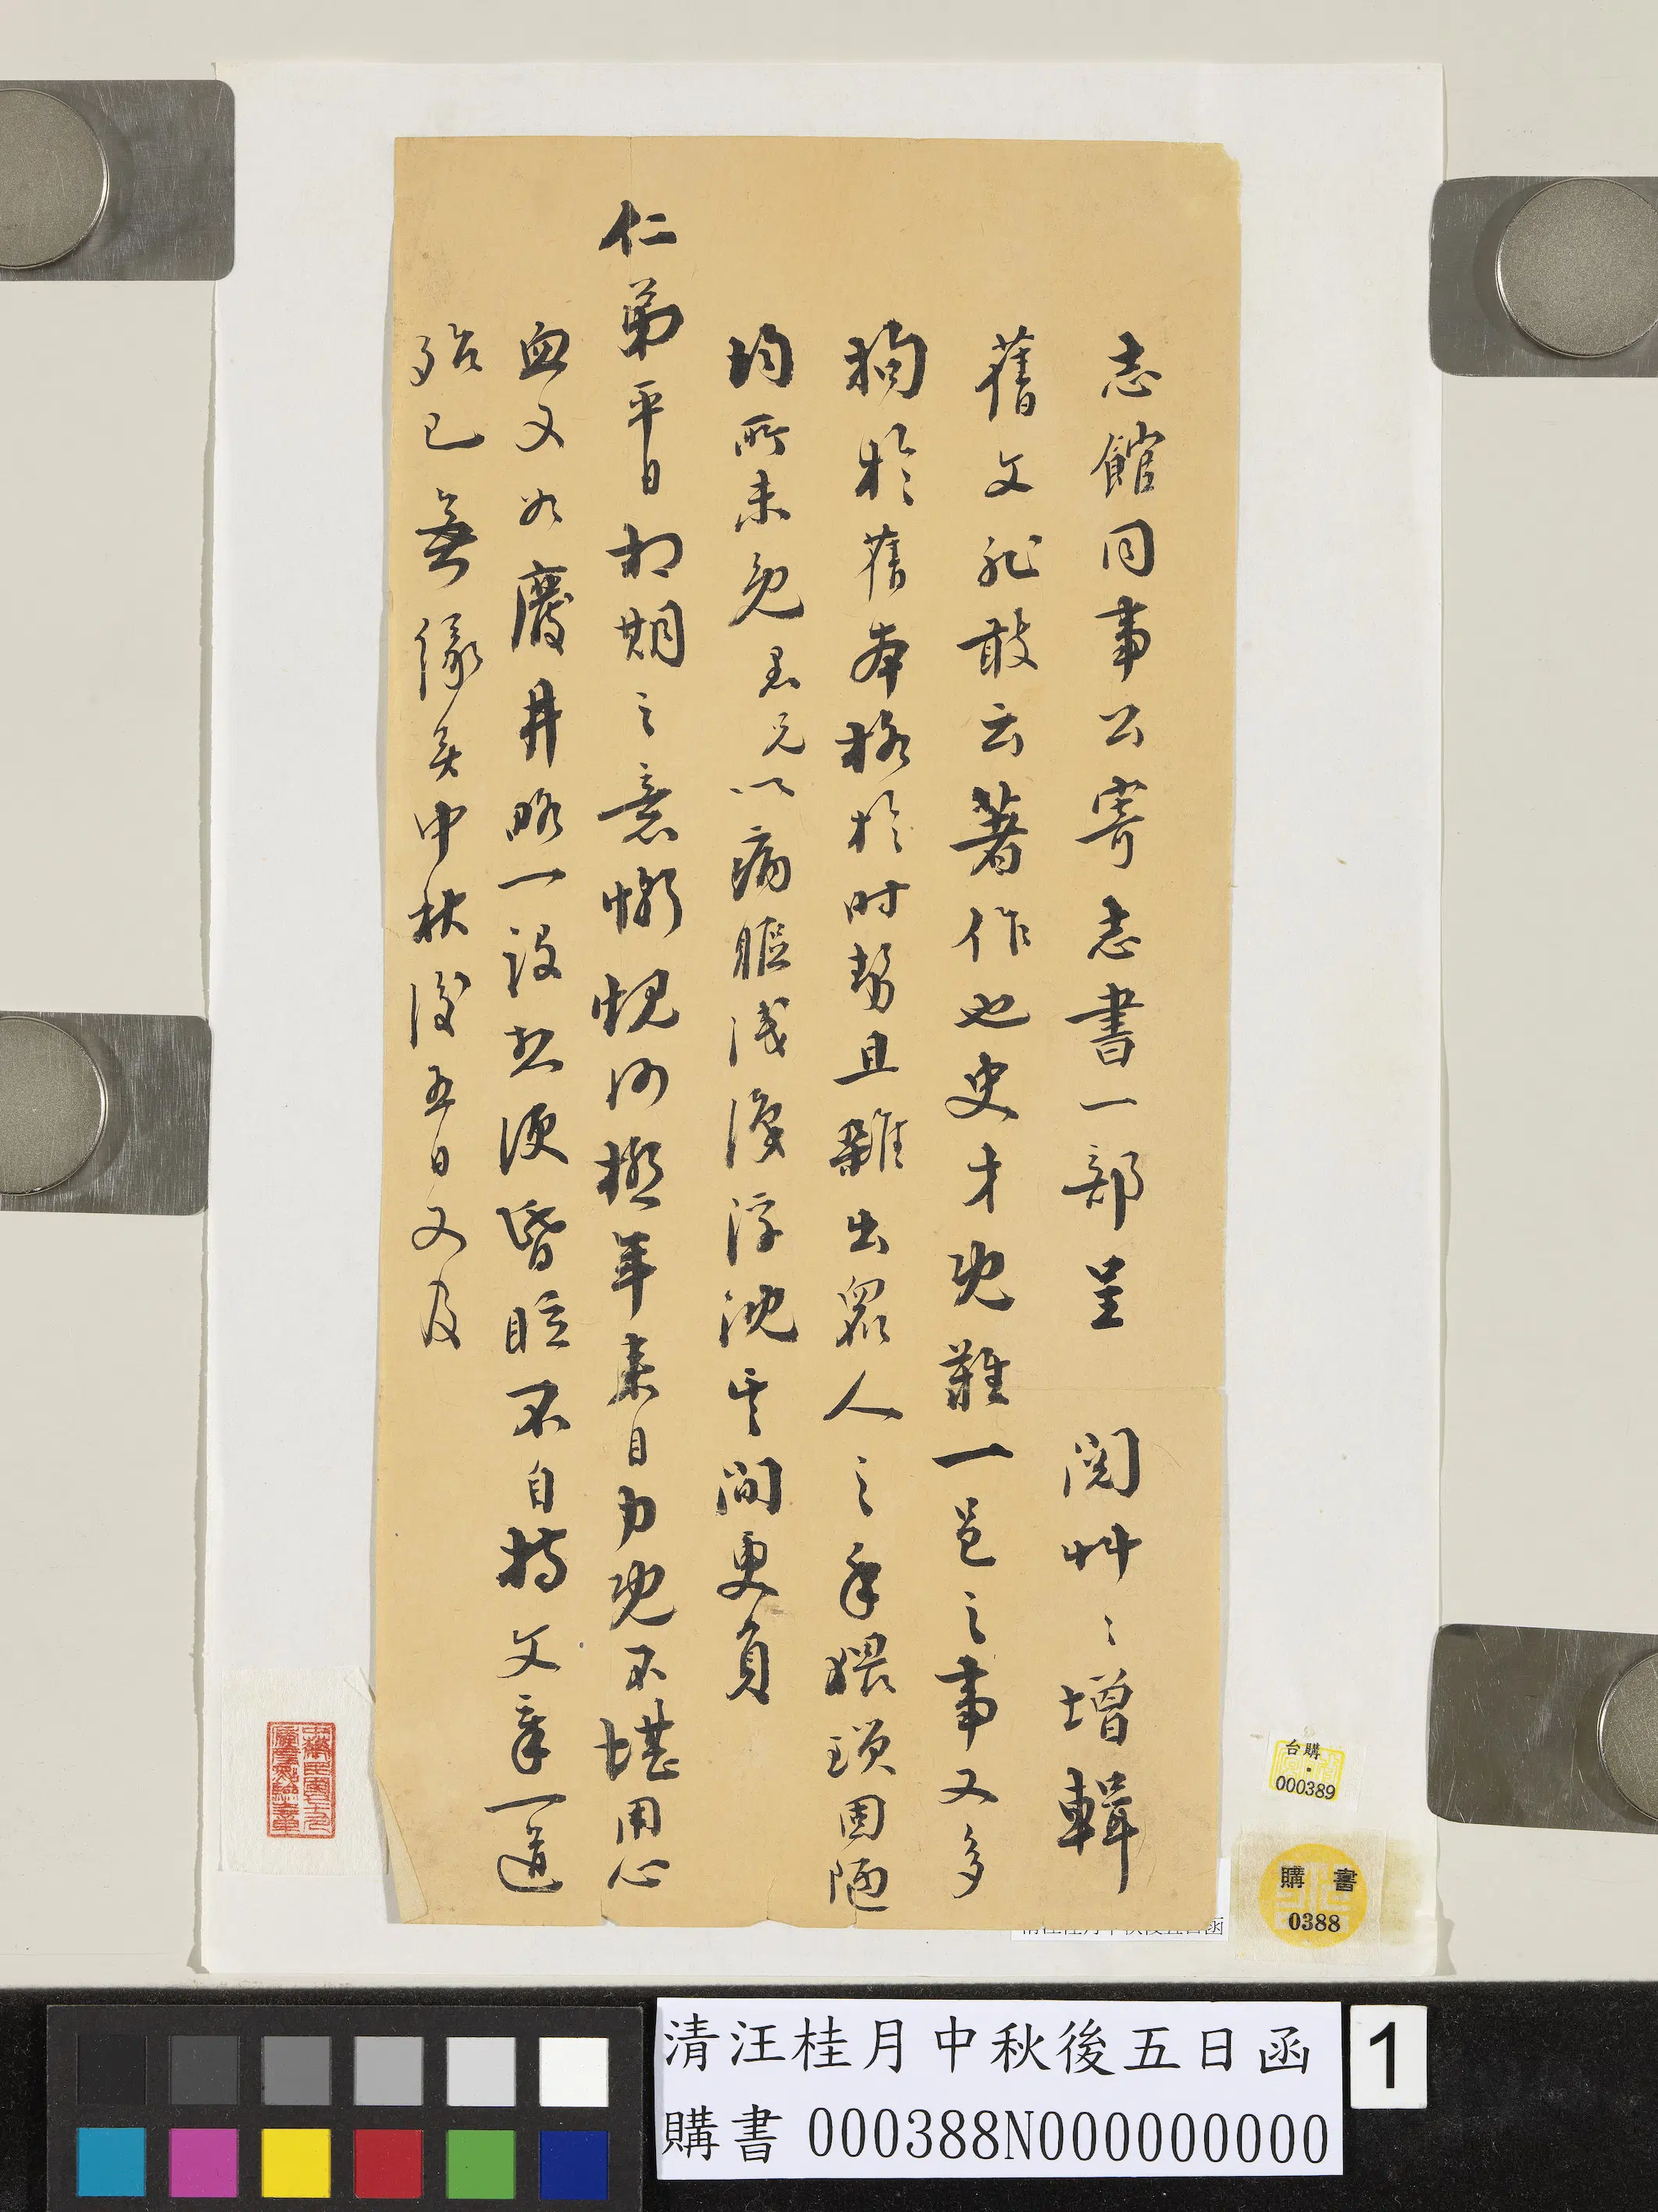 志館同事公寄志書一部呈 閱艸〻增輯
舊文非敢云著作也史才既難一邑之事又多
拘於舊本格於时勢且雜出眾人之手猥瑣固陋
均所未免愚兄以病軀淺深浮沈其間更負
仁弟平日相期之意慚愧何極年來目力既不堪用心
血又如廢井略一設想便昏眩不自持文章一道
殆已無緣矣中秋後五日又及
台購
000389
購書
0388
清汪桂月中秋後五日函
購書 000388N000000000
1